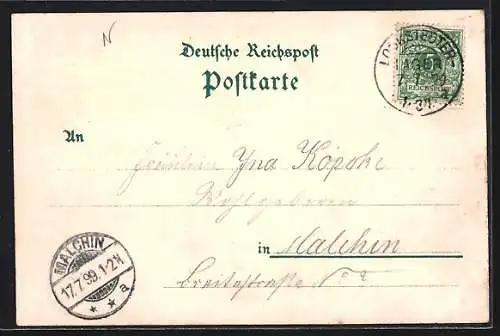 N
Deutsche Reichspost
Postkarte
LOCKSTEDTER
LAGER
a
REICHSPOST
An
Fräulein Ina Köpcke
Wohlgeboren
in Malchin
Breitestraße No 2
MALCHIN
17.7.99.1-2N
* * a